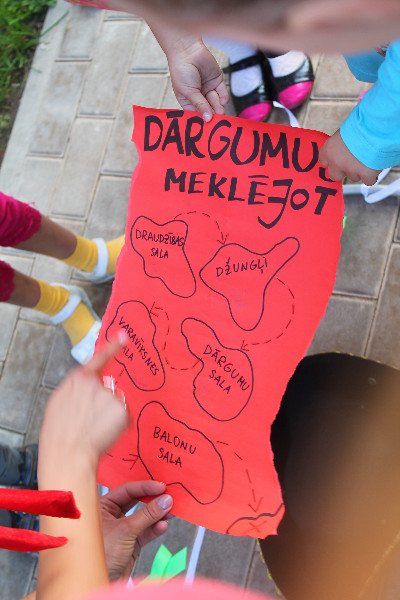 DĀRGUMUS
MEKLĒJOT
DRAUDZĪBAS
SALA
DŽUNGĻI
VARAVĪKSNES
SALA
DĀRGUMU
SALA
BALONU
SALA
X